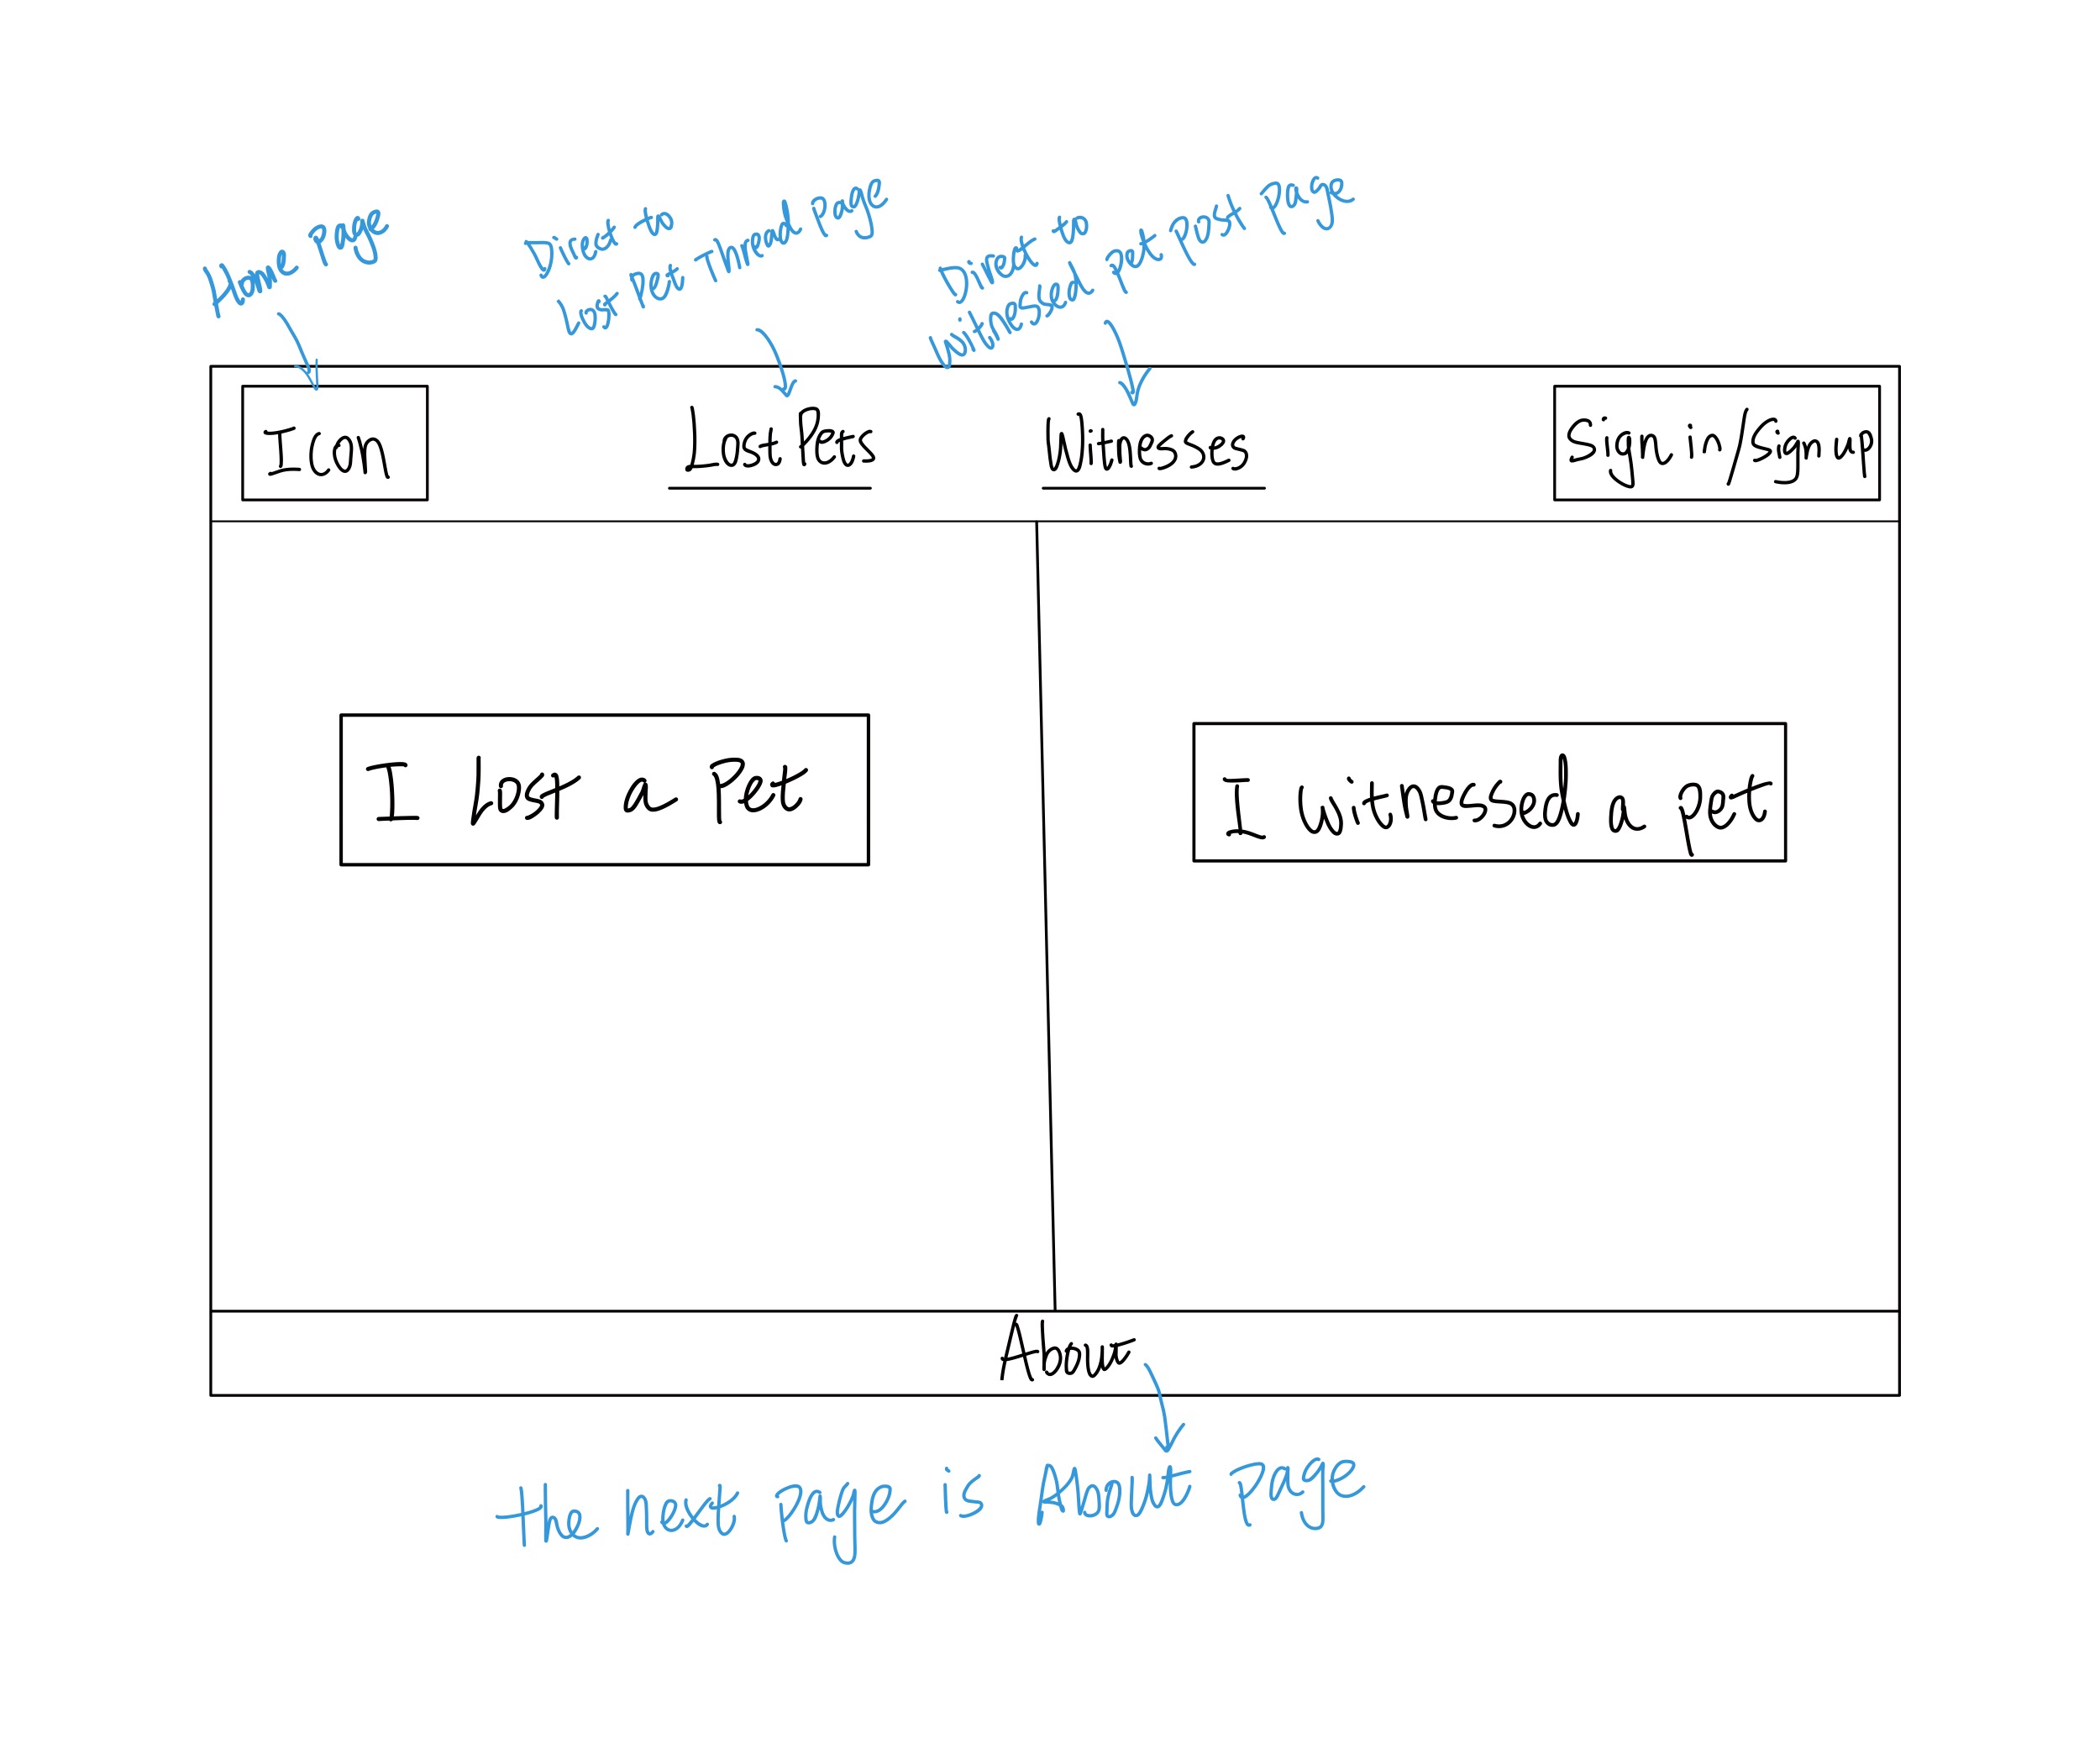 Home Page
Direct to
Lost Pet Thread Page
Direct to
Witnessed pet post Page
Icon
Lost Pets
Witnesses
Sign in/Sign up
I Lost a Pet
I witnessed a pet
About
the next page is About Page